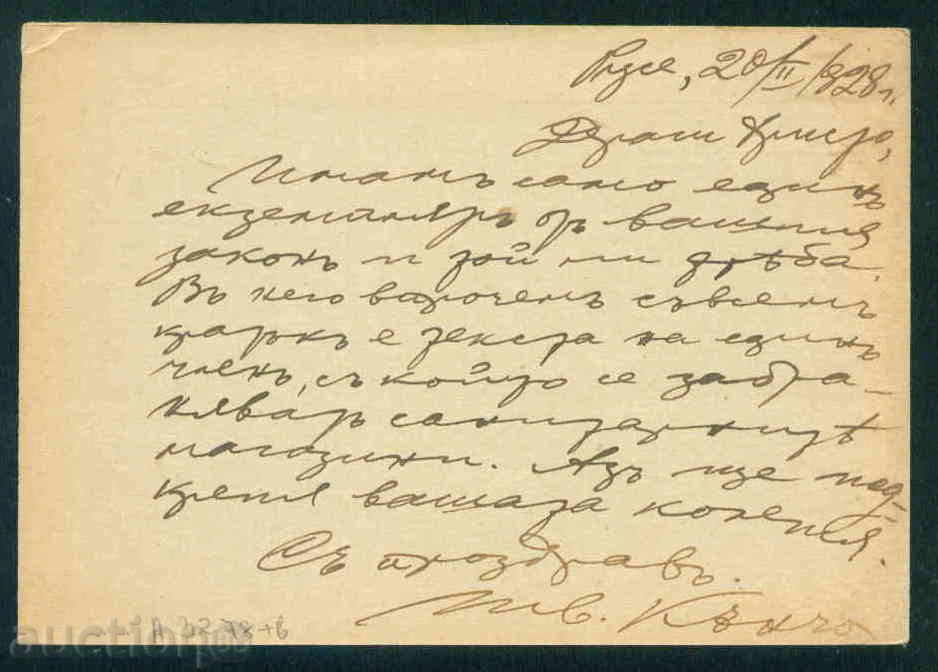 Русе, 20/II 1928 г.
Драги Христо,
Имамъ само единъ
екземпляръ отъ вашия
законъ и той ми трѣба.
Въ него въпрочемъ съвсемъ
кратъкъ е текста на единъ
членъ, съ който се забра-
няватъ санитарнитѣ
магазини. Азъ ще под-
крепя вашата
Съ поздравъ.
Ив.
А 3378+6
auction